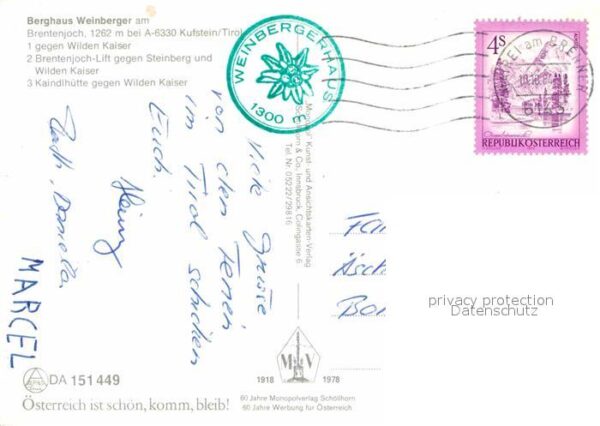 Berghaus Weinberger am
Brentenjoch, 1262 m bei A-6330 Kufstein/Tirol
1 gegen Wilden Kaiser
2 Brentenjoch-Lift gegen Steinberg und
Wilden Kaiser
3 Kaindlhütte gegen Wilden Kaiser
WEINBERGERHAUS
1300 m
4S
REPUBLIK ÖSTERREICH
AM BRENNER
Viele Grüße
von den Ferien
im Tirol schicken
Euch.
Heinz
Ruth, Daniela.
MARCEL
Kunst- und Ansichtskarten-Verlag
& Co, Innsbruck, Colingasse 6
Tel. Nr. 05222/29816
Fa
Äsch
Bo
privacy protection
Datenschutz
DA 151449
Österreich ist schön, komm, bleib!
M V
1918 1978
60 Jahre Monopolverlag Schöllhorn
60 Jahre Werbung für Österreich